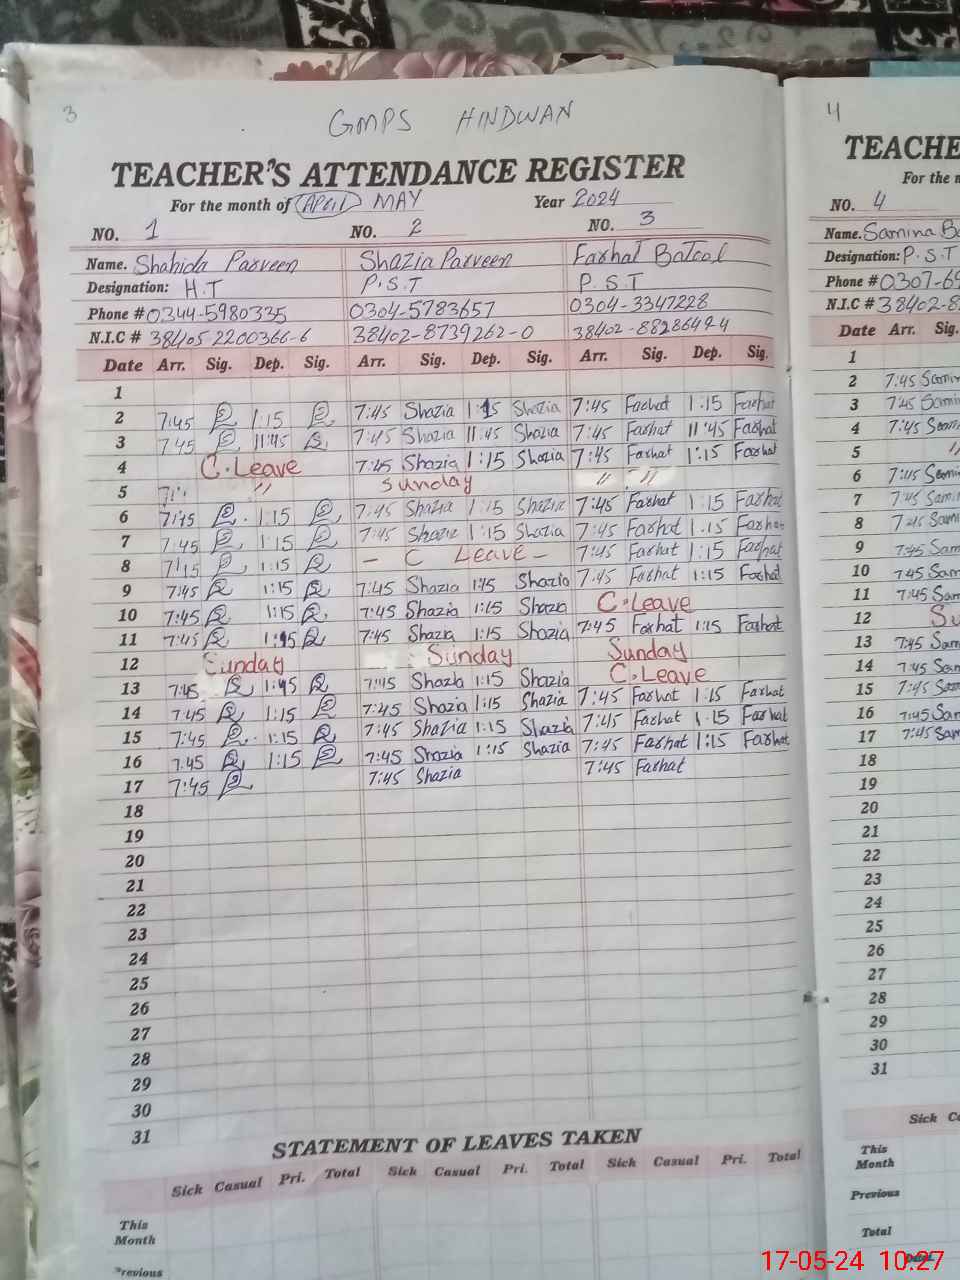 3
GMPS HINDWAN
TEACHER'S ATTENDANCE REGISTER
For the month of April MAY Year 2024
NO. 1 NO. 2 NO. 3
Name. Shahida Parveen Shazia Parveen Farhat Batool
Designation: H.T P.S.T P.S.T
Phone # 0344-5980335 0304-5783657 0304-3347228
N.I.C # 38405 2200366-6 38402-8739262-0 38402-
Date Arr. Sig. Dep. Sig. Arr. Sig. Dep. Sig. Arr. Sig. Dep. Sig.
1
2 7:45 1:15 7:45 Shazia 1:15 Shazia 7:45 Farhat 1:15 Farhat
3 7:45 11:45 7:45 Shazia 11:45 Shazia 7:45 Farhat 11:45 Farhat
4 C.Leave 7:45 Shazia 1:15 Shazia 7:45 Farhat 1:15 Farhat
5 " Sunday " "
6 1:15 7:45 Shazia 1:15 Shazia 7:45 Farhat 1:15 Farhat
7 7:45 1:15 7:45 Shazia 1:15 Shazia 7:45 Farhat 1:15 Farhat
8 1:15 - C Leave - 7:45 Farhat 1:15 Farhat
9 7:45 1:15 7:45 Shazia Shazia 7:45 Farhat 1:15 Farhat
10 7:45 1:15 7:45 Shazia 1:15 Shazia C.Leave
11 7:45 1:15 7:45 Shazia 1:15 Shazia 7:45 Farhat 1:15 Farhat
12 Sunday Sunday Sunday
13 7:45 7:45 Shazia 1:15 Shazia C.Leave
14 7:45 1:15 7:45 Shazia 1:15 Shazia 7:45 Farhat 1:15 Farhat
15 7:45 1:15 7:45 Shazia 1:15 Shazia 7:45 Farhat 1:15 Farhat
16 7:45 1:15 7:45 Shazia 1:15 Shazia 7:45 Farhat 1:15 Farhat
17 7:45 7:45 Shazia 7:45 Farhat
18
19
20
21
22
23
24
25
26
27
28
29
30
31
STATEMENT OF LEAVES TAKEN
Sick Casual Pri. Total Sick Casual Pri. Total Sick Casual Pri. Total
This Month
Previous
4
TEACHE
For the m
NO. 4
Name. Samina Ba
Designation: P.S.T
Phone # 0307-69
N.I.C # 38402-8
Date Arr. Sig.
1
2 7:45 Samin
3 7:45 Samin
4 7:45 Samin
5 "
6 7:45 Samin
7 7:45 Samin
8 7:45 Samin
9 7:45 Sam
10 7:45 Sam
11 7:45 Sam
12 Su
13 7:45 Sam
14 7:45 Sam
15 7:45 Sam
16 7:45 Sam
17 7:45 Sam
18
19
20
21
22
23
24
25
26
27
28
29
30
31
Sick Ca
This Month
Previous
Total
17-05-24 10:27